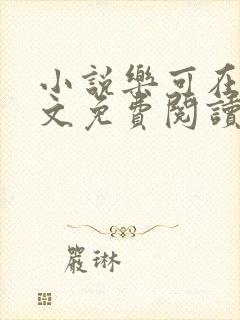 小說樂可在
文免費閱讀
嚴琳